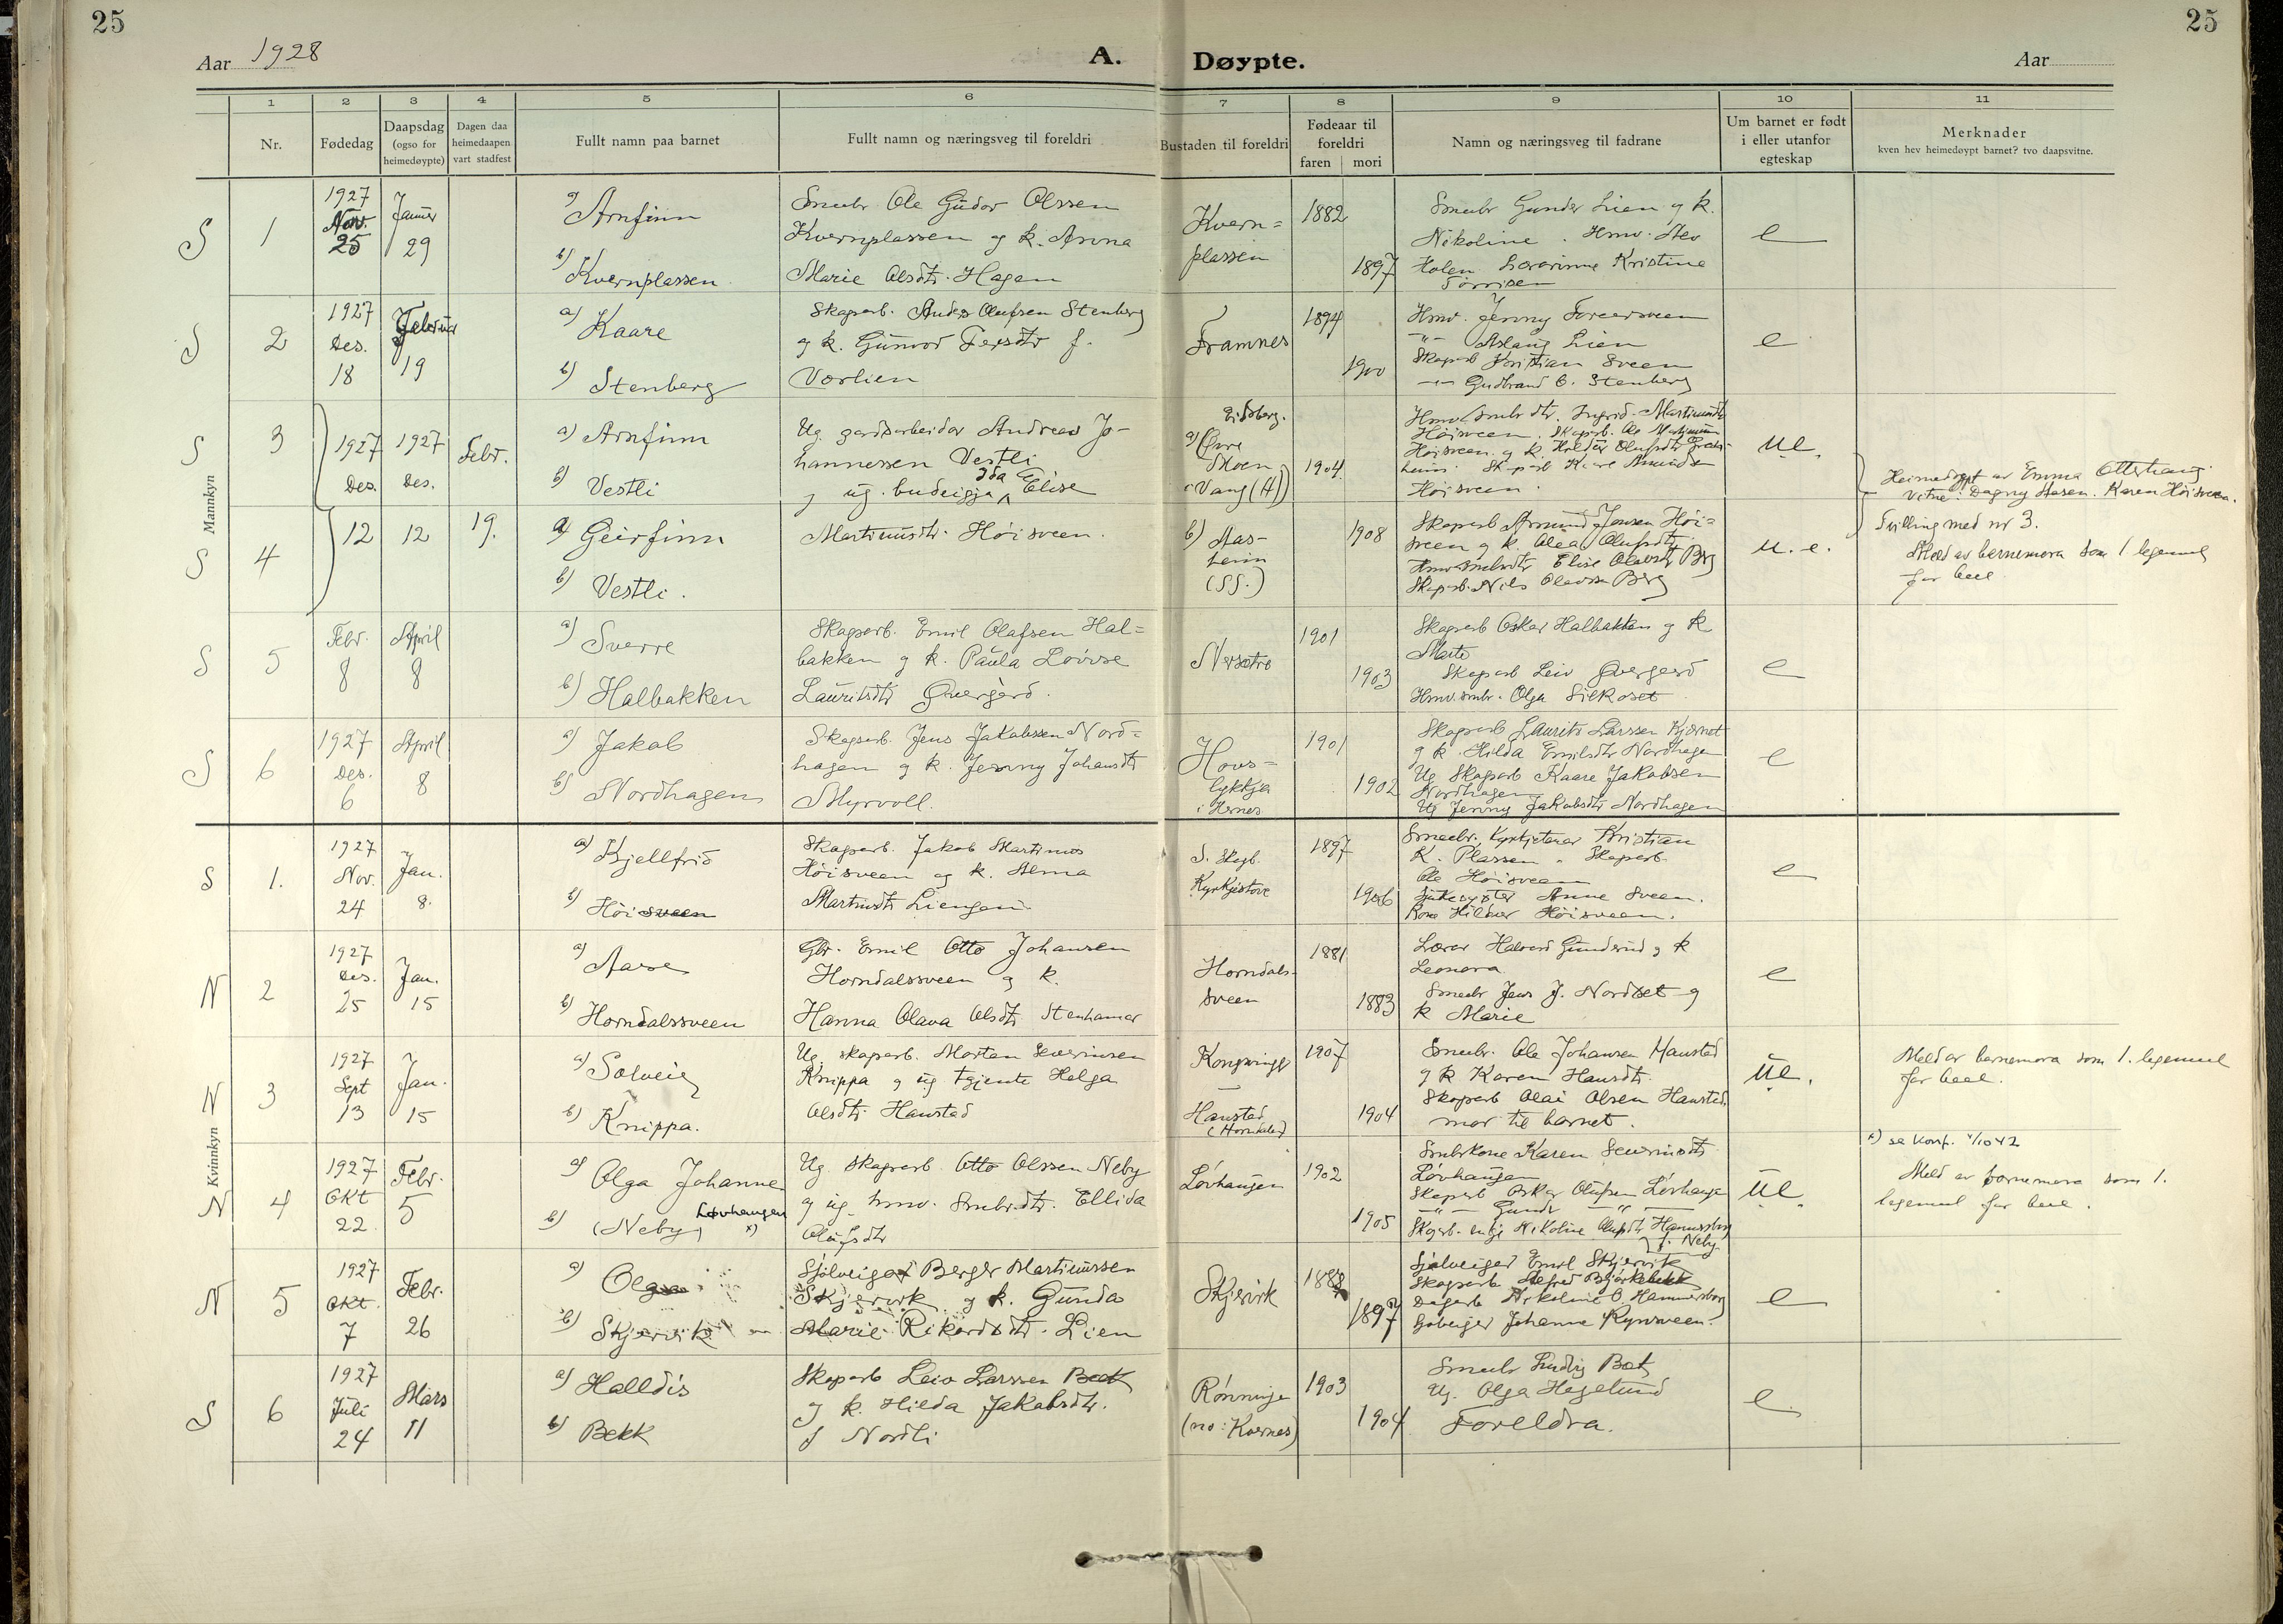 25
25
Aar 1928
A. Døypte.
Aar
1 2 3 4 5 6 7 8 9 10 11
Nr.
Fødedag
Daapsdag
(ogso for
heimedøypte)
Dagen daa
heimedaapen
vart stadfest
Fullt namn paa barnet
Fullt namn og næringsveg til foreldri
Bustaden til foreldri
Fødeaar til
foreldri
faren mori
Namn og næringsveg til fadrane
Um barnet er født
i eller utanfor
egteskap
Merknader
kven hev heimedøypt barnet? tvo daapsvitne.
Mannkyn
S 1
1927
Nov.
25
Januer
29
a) Arnfinn
b) Kvernplassen
Smubr. Ole Gudor Olssen
Kvernplassen og k. Anna
Marie Olsdtr. Hagen
Kvern=
plassen
1882
1897
Smubr Gunder Lien og k.
Nikoline . Hmv.
Holen Lærarinne Kristine
e
S 2
1927
Des.
18
Februar
19
a) Kaare
b) Stenberg
Skogarb. Anders Olufsen Stenberg
og k. Gunvor Persdtr f.
Vorlien
Framnes
1894
1900
Hmv. Jenny
-"- Aslaug Lien
Skogarb Kristian Sveen
-"- Gudbrand O. Stenberg
e
S 3
1927
Des.
12
1927
Des.
12
Febr.
19.
a) Arnfinn
b) Vestli
Ug. gardsarbeidar Andreas Jo-
hannessen Vestli
og ug. budeigja Ida Elise
Martinusdtr. Höisveen.
Eidsberg.
a) Övre
Moen
Vang (H)
1904
Hmv Smbr dtr. Ingrid Martinusdtr
Höisveen. Skogarb. Ole Martinsen
Höisveen og k. Olufsdtr
Höisveen.
u.e.
S 4
a) Geirfinn
b) Vestli.
b) Aas-
heim
(SS.)
1908
Skogarb Amund Jensen Höi=
sveen og k. Olea Olufsdtr
Elise Olavsdtr Berg
Skogarb. Nils Olavssen Berg
u. e.
Heimedøypt av Emma Otterhaug
Vitne: Dagny Aasen. Karen Höisveen.
Tvilling med nr 3.
Meld av barnemora som 1. legemul
far beel.
S 5
Febr.
8
April
8
a) Sverre
b) Halbakken
Skogarb. Emil Olafsen Hal=
bakken og k. Paula Lovise
Lauritsdtr Övergård.
Nersætre
1901
1903
Skogarb Oskar Halbakken og k
Marte
Skogarb Leiv Övergård
Hmv. smbr. Olga Silkoset
e
S 6
1927
Des.
6
April
8
a) Jakob
b) Nordhagen
Skogarb. Jens Jakobssen Nord=
hagen og k. Jenny Johansdtr
Myrvoll.
Hovs=
lykkja
i Hernes
1901
1902
Skogarb Laurits Larssen Kjernet
og k. Hilda Emilsdtr Nordhagen
Ug Skogarb Kaare Jakobsen
Nordhagen
Ug Jenny Jakobsdtr Nordhagen
e
Kvinnkyn
S 1.
1927
Nov.
24
Jan.
8.
a) Kjellfrid
b) Höisveen
Skogarb. Jakob Martinus
Höisveen og k. Alma
Martinsdtr Liengen
S. Skogb.
Kyrkjestove
1897
1906
Smaabr. Kyrkjetenar Kristian
K. Plassen. Skogarb.
Ole Höisveen
Sjukesyster Anne Sveen.
Höisveen.
e
N 2
1927
Des.
25
Jan.
15
a) Aase
b) Horndalssveen
Gbr. Emil Otto Johansen
Horndalssveen og k.
Hanna Olava Olsdtr Stenhamar
Horndals-
sveen
1881
1883
Lærar Halvard Gunderud og k
Leonora
Smubr Jens J. Nordset og
k Marie
e
N 3
1927
Sept
13
Jan.
15
a) Solveig
b) Knippa.
Ug. skogarb. Morten Severinsen
Knippa og ug tjente Helga
Olsdtr. Haustad
Kongsvinger
Haustad
(Horndalen)
1907
1904
Smubr. Ole Johansen Haustad
og k Karen Hansdtr.
Skogarb Olai Olsen Haustad.
mor til barnet.
u.e.
Meld av barnemora som 1. legemul
far beel.
N 4
1927
Okt
22.
Febr.
5
a) Olga Johanne
b) (Neby) Løvhaugen x)
Ug. Skogarb. Otto Olssen Neby
og ug. hmv. Smbr.dtr. Ellida
Olufsdtr
Lövhaugen
1902
1905
Smbrkone Karen Severinsdtr
Lövhaugen
Skogarb Oskar Olufsen Lövhaugen
-"- Gundr -"-
Skogarb. enkje Nikoline Olufsdtr Hammersborg
f. Neby
u.e.
x) se konf. 4/10 42
Meld av barnemora som 1.
legemul far beel.
N 5
1927
Okt.
7
Febr.
26
a) Olga
b) Skjervik
Sjölveigar Berger Martinussen
Skjervik og k. Gunda
Marie Rikardsdtr. Lien
Skjervik
1888
1897
Sjölveigar Emil Skjervik
Skogarb Alfred Björkebekk
Dagarb Nikoline O. Hammersborg
Johanne Rynsveen.
e
S 6
1927
Juli
24
Mars
11
a) Halldis
b) Bekk
Skogarb Leiv Larssen Bekk
og k. Hilda Jakobsdtr.
f Nordli
Rönninge
(no: Kvernes)
1903
1904
Smubr Ludvig
Ug. Olga Hagelund
Foreldra.
e